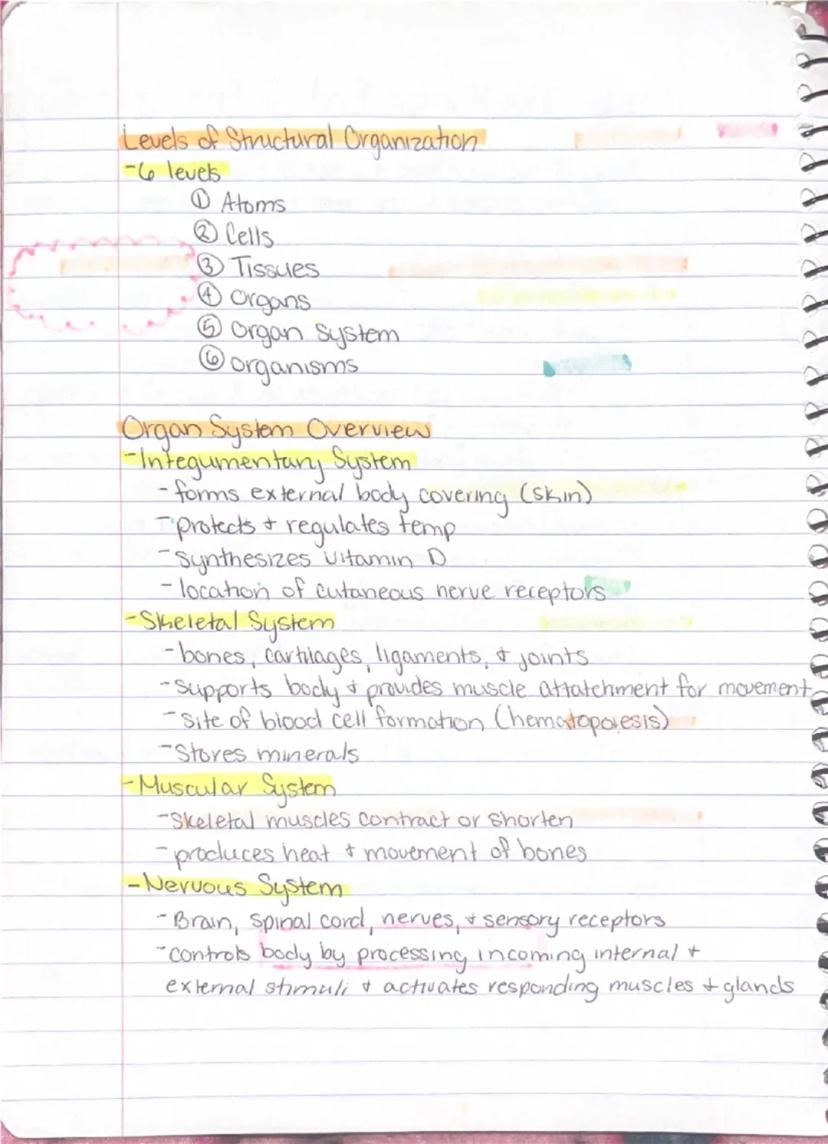 Levels of Structural Organization
-6 levels
① Atoms
② Cells
③ Tissues
④ Organs
⑤ Organ System
⑥ organisms
Organ System Overview
-Integumentary System
-forms external body covering (skin)
-protects + regulates temp
-synthesizes vitamin D
-location of cutaneous nerve receptors
-Skeletal System
-bones, cartilages, ligaments, + joints
-supports body + provides muscle attatchment for movement
-site of blood cell formation (hematopoiesis)
-Stores minerals
-Muscular System
-Skeletal muscles contract or shorten
-produces heat + movement of bones
-Nervous System
-Brain, spinal cord, nerves, + sensory receptors
-controls body by processing incoming internal +
external stimuli + activates responding muscles + glands